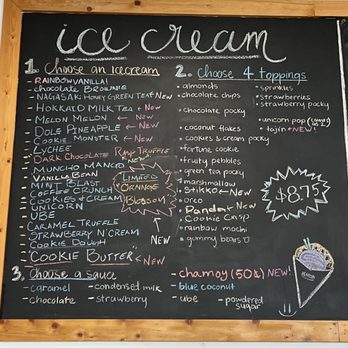 ice cream
1. Choose an icecream
- RAINBOW VANILLA!
- chocolate Brownie
- NAGASAKI HONEY GREEN TEA ← NEW
- HOKKAIDO MILK TEA ← NEW
- MELON MELON ← NEW
- DOLE PINEAPPLE ← NEW
- COOKIE MONSTER ← NEW
- LYCHEE
- DARK CHOCOLATE RASP TRUFFLE ← NEW
- MUNCHKO MANGO
- VANILLA BEAN
- MINT BLAST
- COFFEE CRUNCH
- COOKIES & CREAM
- UNICORN
- UBE
- CARAMEL TRUFFLE
- STRAWBERRY N'CREAM
- COOKIE DOUGH
- COOKIE BUTTER ← NEW
LIMITED
ORANGE
Blossom
NEW
2. Choose 4 toppings
- almonds
- chocolate chips
- chocolate pocky
- coconut flakes
- cookies & cream pocky
- fortune cookie
- fruity pebbles
- green tea pocky
- marshmallow
- NEW
- oreo
- Panda ← NEW
- Cookie Crisp
- rainbow mochi
- gummy bears
- sprinkles
- strawberries
- strawberry pocky
- unicorn pop
- NEW!
$8.75
3. Choose a sauce
- caramel
- chocolate
- condensed milk
- strawberry
- chamoy (50¢) NEW!
- blue coconut
- ube
- powdered sugar